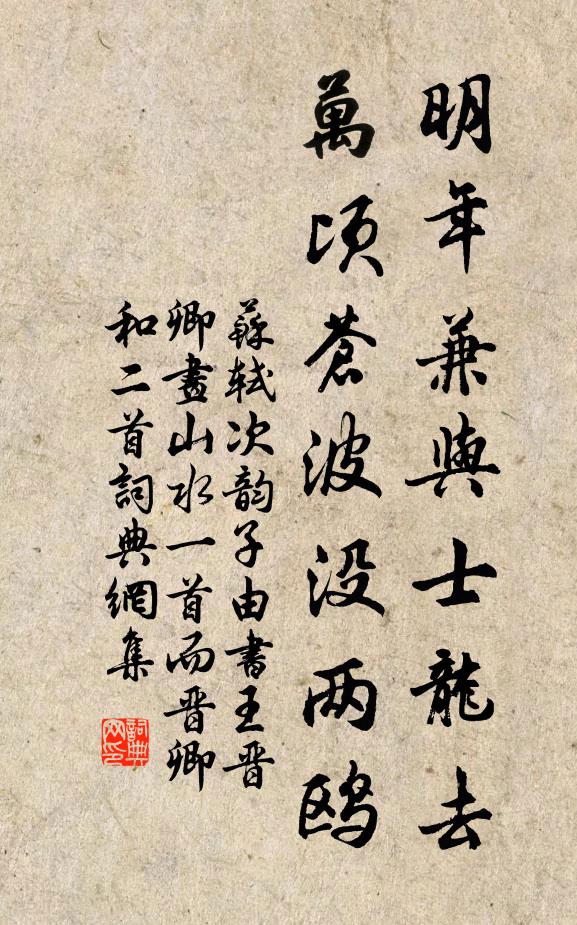 明年兼與士龍去
萬頃蒼波没两鸥
蘇軾次韵子由書王晋
卿畫山水一首而晋卿
和二首詞典網集
詞典
网印